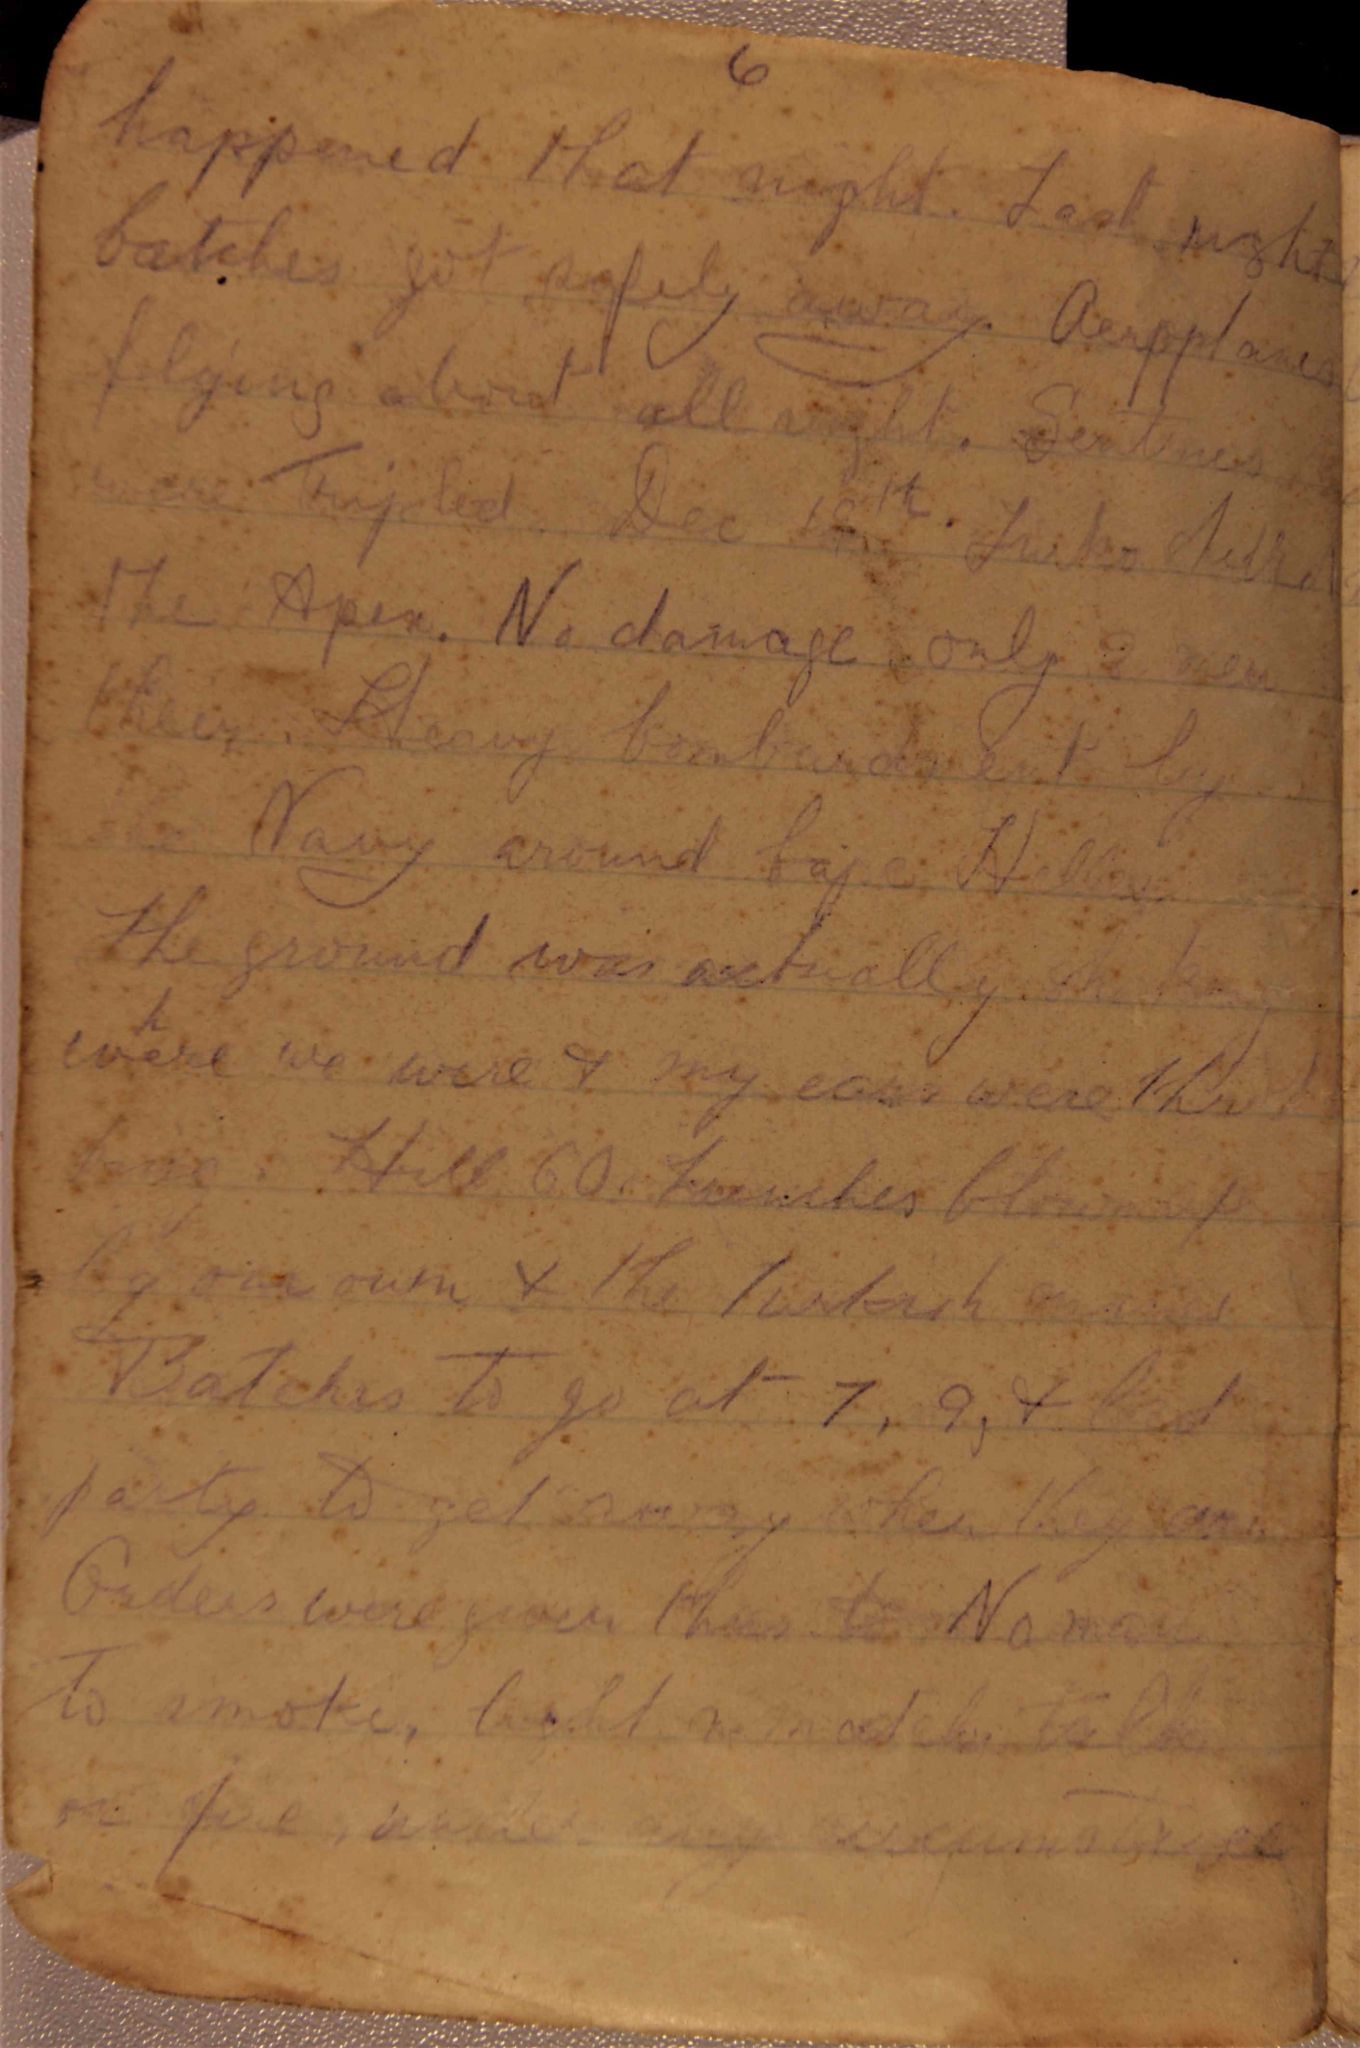 6
happened that night. Last night
batches got safely away. Aeropplanes
flying about all night. Sentries
were Tripled. Dec 19th. Turks shell
the Apex. No damage only 2 men
their. Heavy bombardment by
the Navy around Cape Helles
The ground was actually shaking
where we were & my ears were
Hill 60. Trenches blown up
by our own & the Turkish mines
Batches to go at 7, 9, & last
party to get away when they can.
Orders were given thus to No man
to smoke, light a match, talk
or fire, under any circumstances